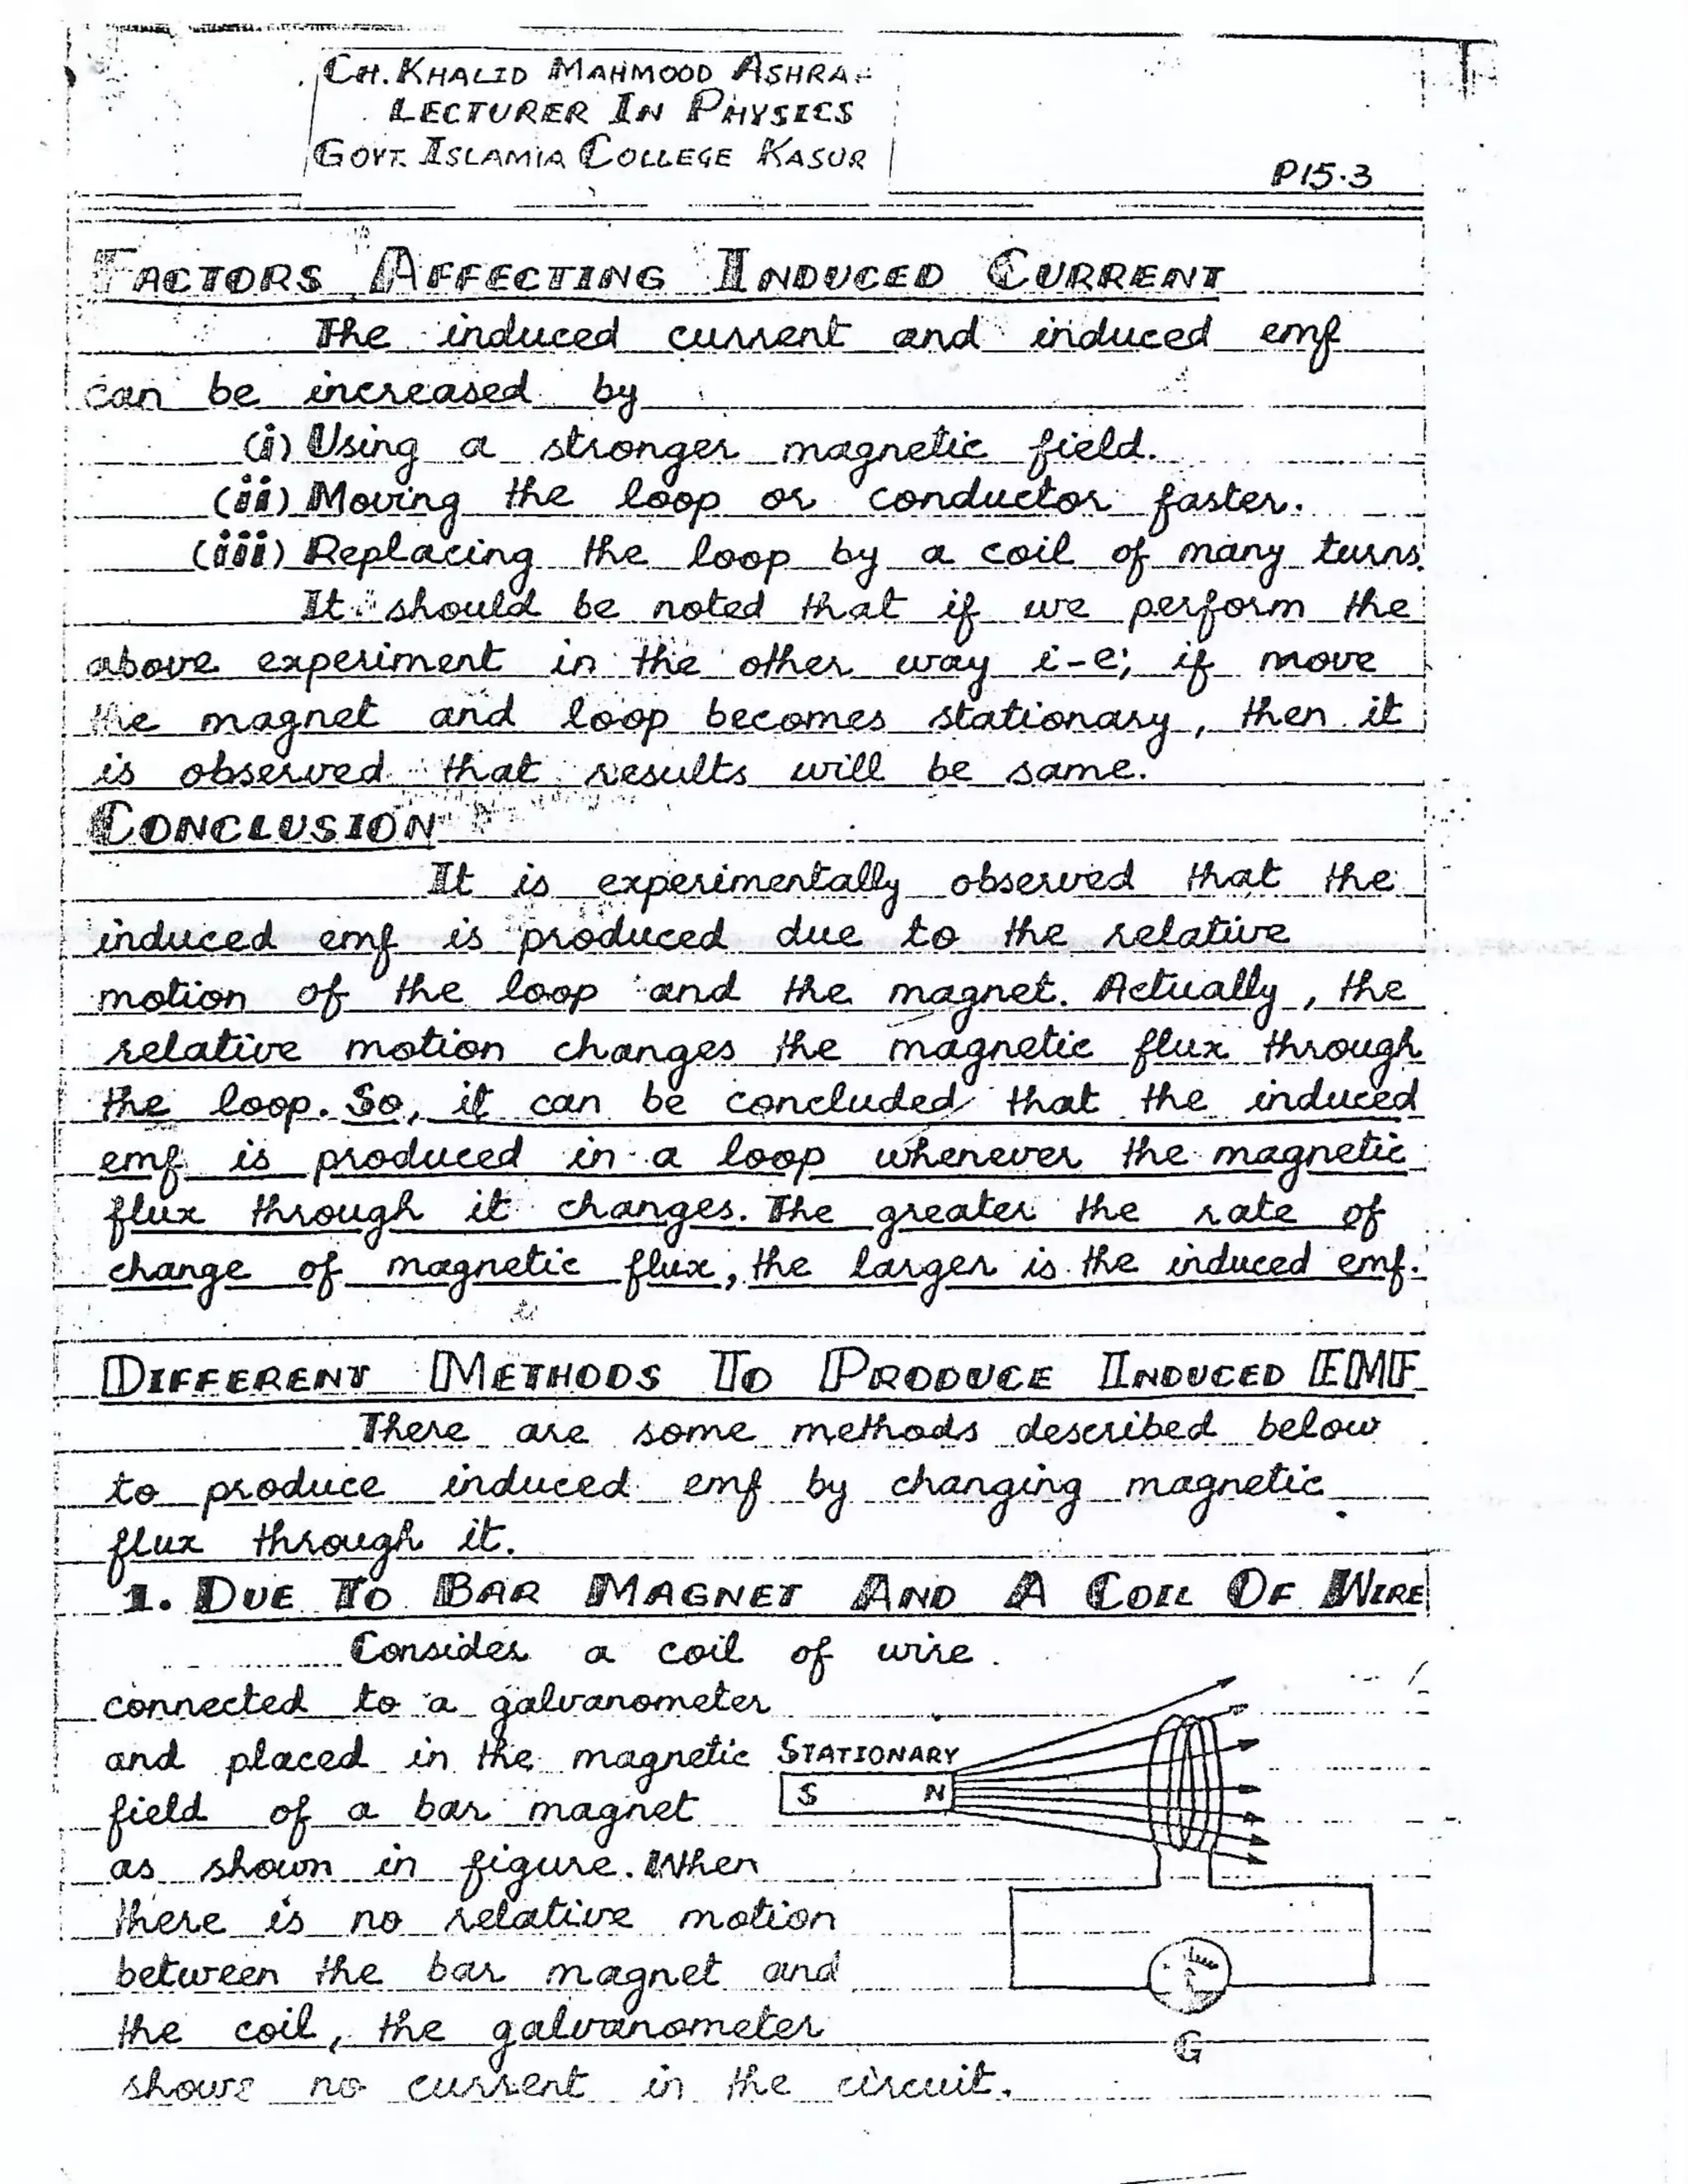 CH. KHALID MAHMOOD ASHRAF
LECTURER IN PHYSICS
GOVT. ISLAMIA COLLEGE KASUR
P15.3
FACTORS AFFECTING INDUCED CURRENT
The induced current and induced emf
can be increased by
(i) Using a stronger magnetic field.
(ii) Moving the loop or conductor faster.
(iii) Replacing the loop by a coil of many turns.
It should be noted that if we perform the
above experiment in the other way i-e; if move
the magnet and loop becomes stationary, then it
is observed that results will be same.
CONCLUSION
It is experimentally observed that the
induced emf is produced due to the relative
motion of the loop and the magnet. Actually, the
relative motion changes the magnetic flux through
the loop. So, it can be concluded that the induced
emf is produced in a loop whenever the magnetic
flux through it changes. The greater the rate of
change of magnetic flux, the larger is the induced emf.
DIFFERENT METHODS TO PRODUCE INDUCED EMF
There are some methods described below
to produce induced emf by changing magnetic
flux through it.
1. DUE TO BAR MAGNET AND A COIL OF WIRE
Consider a coil of wire
connected to a galvanometer
and placed in the magnetic
field of a bar magnet
as shown in figure. When
there is no relative motion
between the bar magnet and
the coil, the galvanometer
shows no current in the circuit.
STATIONARY
S N
G